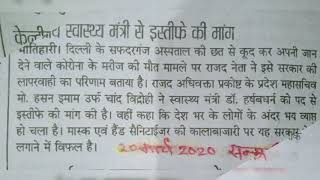 केन्द्रीय स्वास्थ्य मंत्री से इस्तीफे की मांग
मोतिहारी। दिल्ली के सफदरगंज अस्पताल की छत से कूद कर अपनी जान
देने वाले कोरोना के मरीज की मौत मामले पर राजद नेता ने इसे सरकार की
लापरवाही का परिणाम बताया है। राजद अधिवक्ता प्रकोष्ठ के प्रदेश महासचिव
मो. हसन इमाम उर्फ चांद विद्रोही ने स्वास्थ्य मंत्री डॉ. हर्षबर्धन की पद से
इस्तीफे की मांग की है। वहीं कहा कि देश भर के लोगों के अंदर भय व्याप्त
हो चला है। मास्क एवं हैंड सैनिटाईजर की कालाबाजारी पर यह सरकार
लगाने में विफल है।
20 मार्च 2020